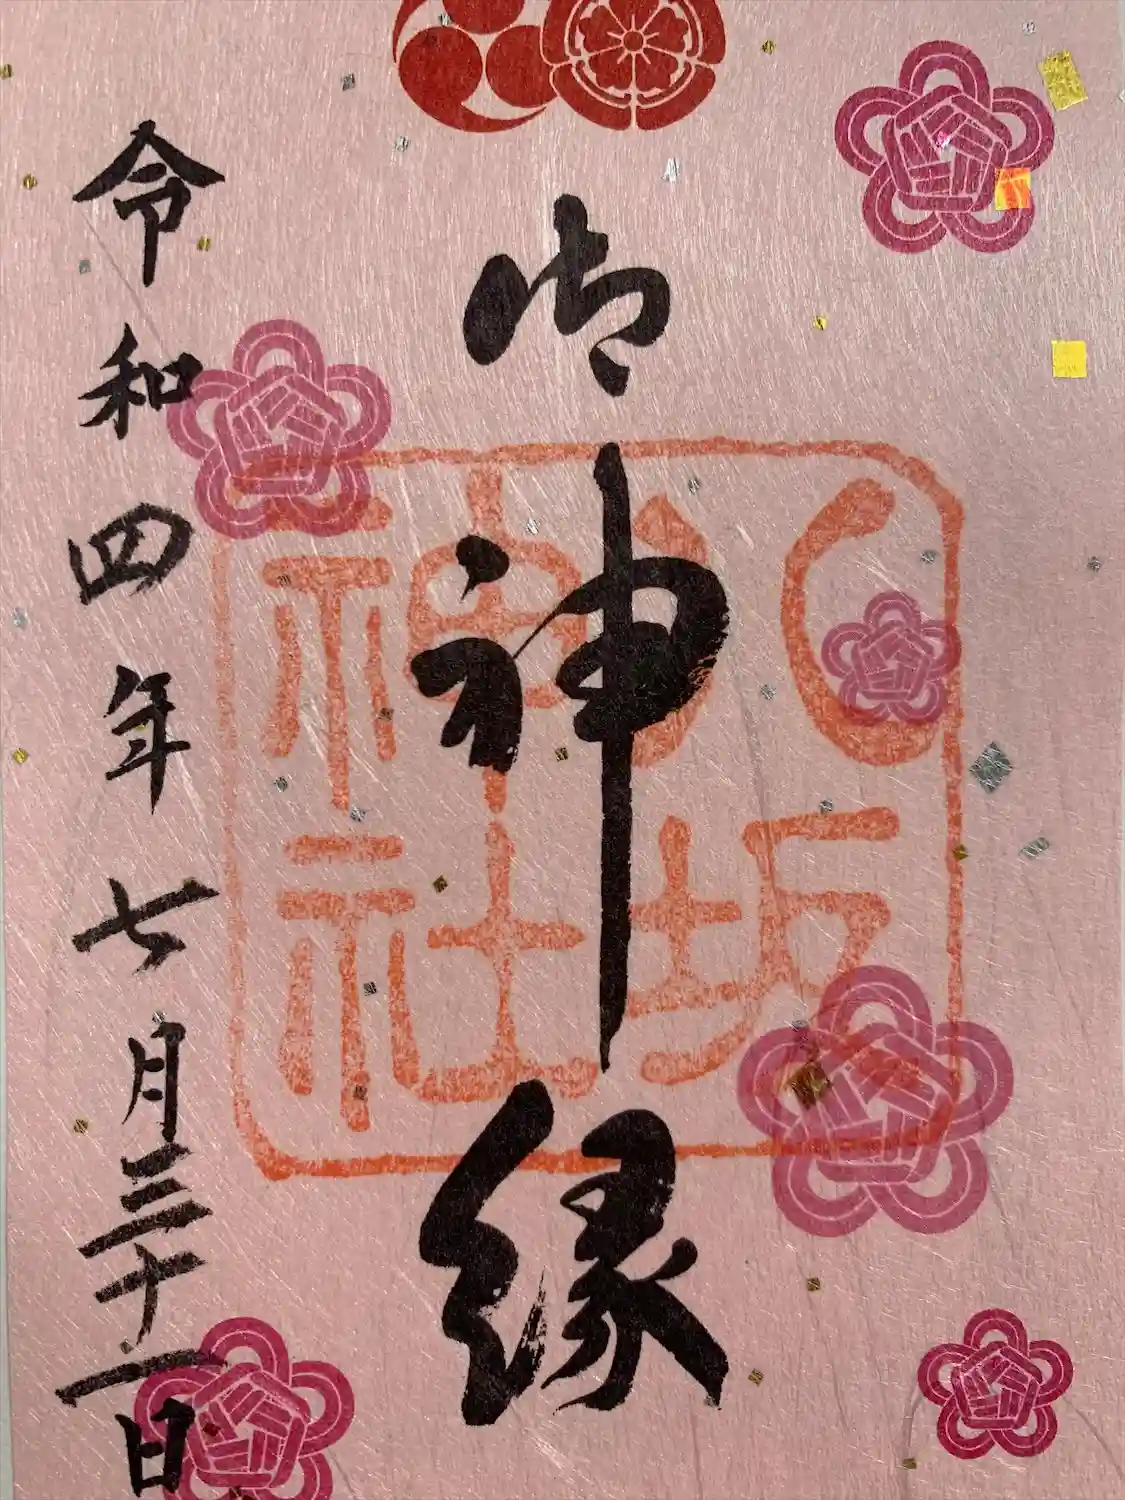 御神縁
八坂神社
令和四年七月三十一日